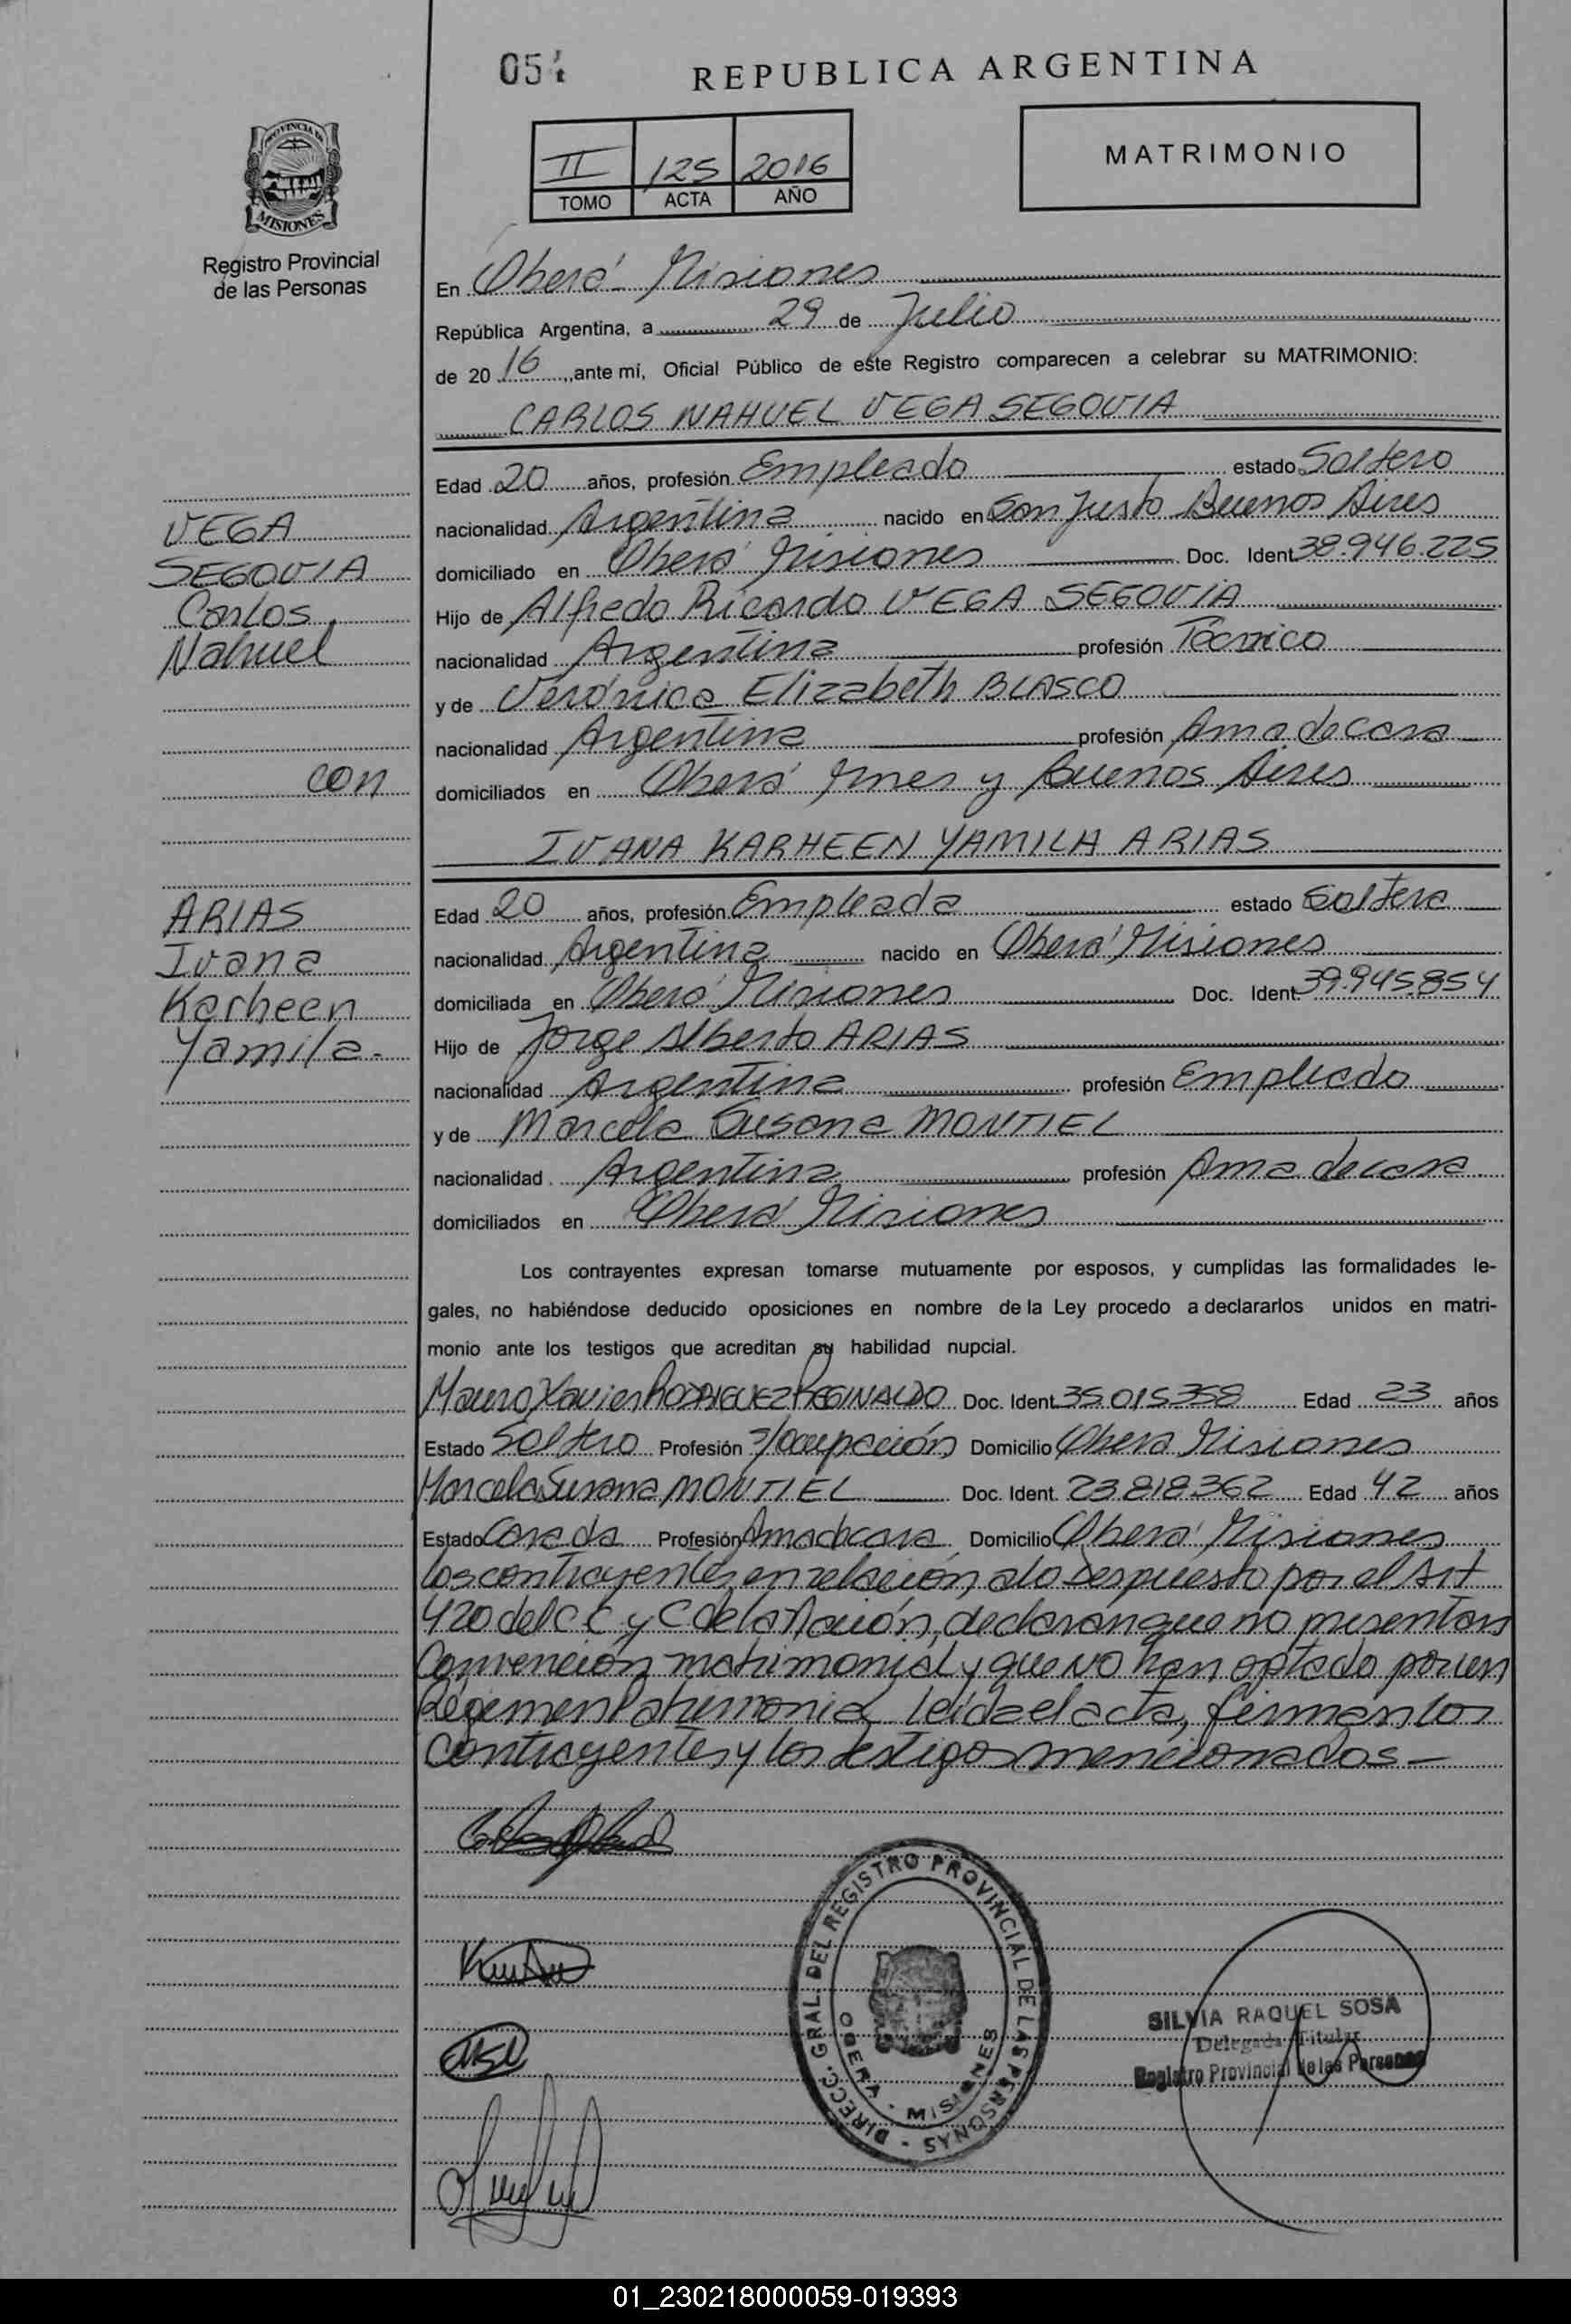 05
REPUBLICA ARGENTINA
II 125 2016
TOMO ACTA AÑO
MATRIMONIO
PROVINCIA DE
MISIONES
Registro Provincial
de las Personas
En Oberá Misiones
República Argentina, a 29 de Julio
de 2016, ante mi, Oficial Público de este Registro comparecen a celebrar su MATRIMONIO:
CARLOS NAHUEL VEGA SEGOVIA
Edad 20 años, profesión Empleado estado Soltero
nacionalidad Argentina nacido en San Justo Buenos Aires
domiciliado en Oberá Misiones Doc. Ident 38.946.225
Hijo de Alfredo Ricardo VEGA SEGOVIA
nacionalidad Argentina profesión Técnico
y de Verónica Elizabeth BLASCO
nacionalidad Argentina profesión Ama de casa
domiciliados en Oberá Mnes y Buenos Aires
VEGA
SEGOVIA
Carlos
Nahuel
con
IVANA KARHEEN YAMILA ARIAS
Edad 20 años, profesión Empleada estado Soltera
nacionalidad Argentina nacido en Oberá Misiones
domiciliada en Oberá Misiones Doc. Ident 39.945.854
Hijo de Jorge Alberto ARIAS
nacionalidad Argentina profesión Empleado
y de Marcela Susana MONTIEL
nacionalidad Argentina profesión Ama de casa
domiciliados en Oberá Misiones
ARIAS
Ivana
Karheen
Yamila.
Los contrayentes expresan tomarse mutuamente por esposos, y cumplidas las formalidades le-
gales, no habiéndose deducido oposiciones en nombre de la Ley procedo a declararlos unidos en matri-
monio ante los testigos que acreditan su habilidad nupcial.
Mauro Xavier RODRIGUEZ REGINALDO Doc. Ident 35.015.358 Edad 23 años
Estado Soltero Profesión s/ocupación Domicilio Oberá Misiones
Marcela Susana MONTIEL Doc. Ident. 23.818.362 Edad 42 años
Estado Casada Profesión Ama de casa Domicilio Oberá Misiones
los contrayentes, en relación a lo despuesto por el Art
420 del C C y C de la Nación, declaran que no presentan
Convención matrimonial y que NO han optado por un
Régimen Patrimonial leída el acta, firman los
contrayentes y los testigos mencionados -
DIRECC. GRAL. DEL REGISTRO PROVINCIAL DE LAS PERSONAS
OBERA - MISIONES
SILVIA RAQUEL SOSA
Delegada Titular
Registro Provincial de las Personas
01_230218000059-019393